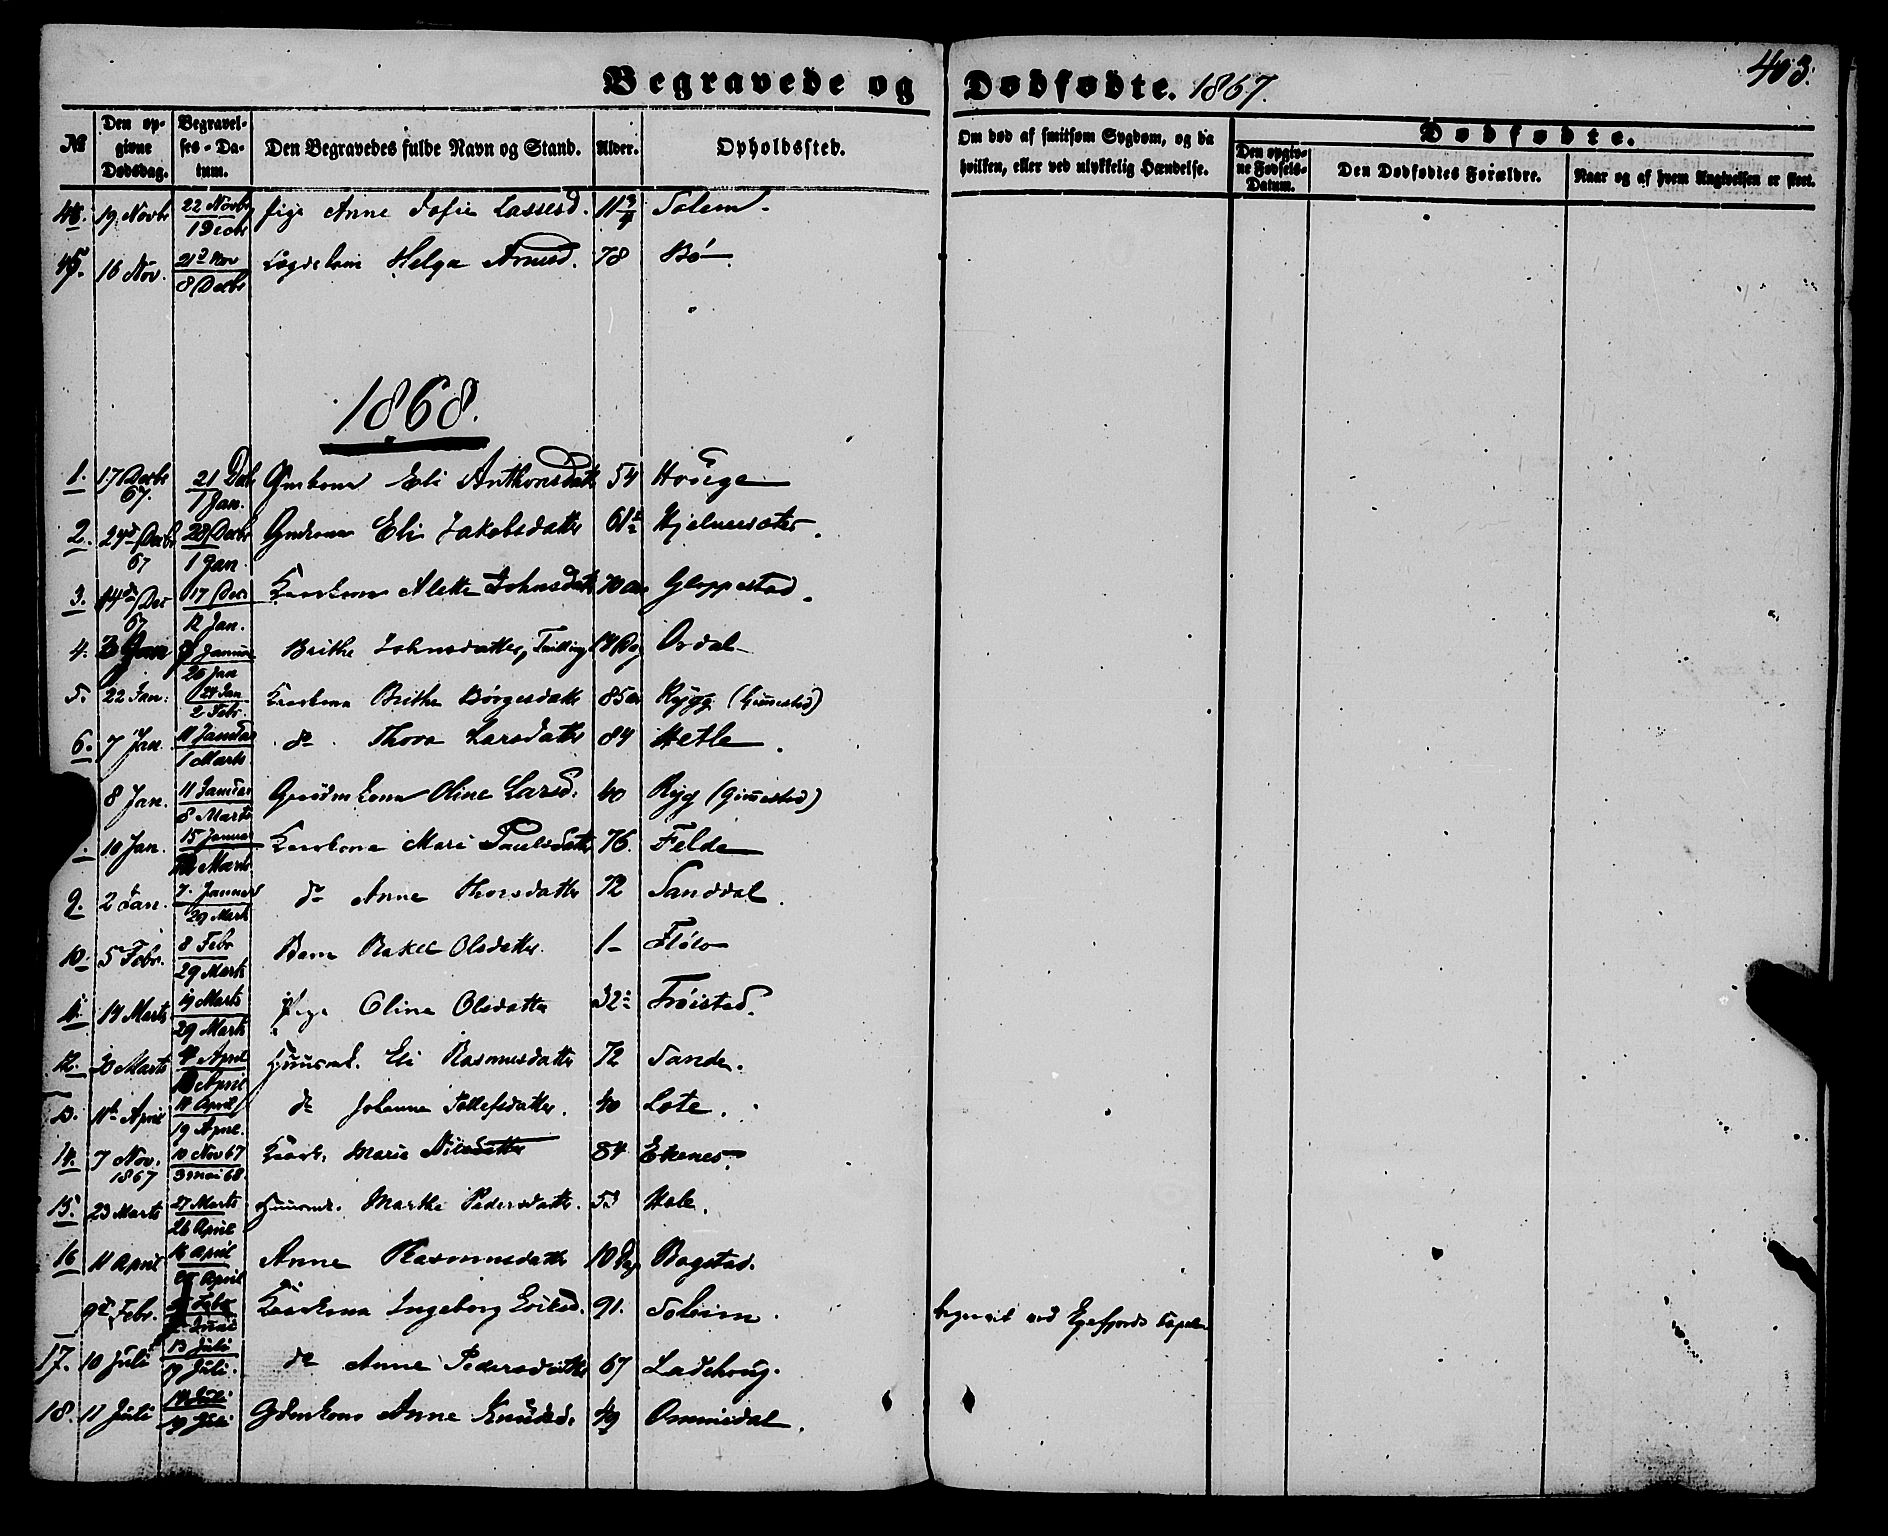 Begravede og Dødfødte. 1867.
403.
№
Den opgivne Dødsdag.
Begravelses-Datum.
Den Begravedes fulde Navn og Stand.
Alder.
Opholdssted.
Om død af smitsom Sygdom, og da hvilken, eller ved ulykkelig Hændelse.
Dødfødte.
Den opgivne Fødsels-Datum.
Den Dødfødtes Forældre.
Naar og af hvem Angivelsen er skeet.
44. 19 Novbr 22 Novbr / 1 Decbr Pige Anne Sofie Lassesd. 11 3/4 Solem.
45. 16 Nov. 21d Nov / 8 Decbr Helga Arnesd. 78 Bø
1868.
1. 17 Decbr 67. 21 Decbr / 1 Jan. Gmkona Eli Anthonsdatter 54 Houge
2. 24d Decbr 67 28 Decbr / 1 Jan Gmkona Eli Jakobsdatter 61 Hjelmesæter.
3. 14de Dec 67 17 Dec / 12 Jan. Kaarkona Alette Johnsdatter 70 Gloppestad.
4. 3 Jan Januar / 26 Jan Brithe Johnsdatter, Tvilling Dag Ordal
5. 22 Jan. 24 Jan / 2 Febr. Kaarkona Brithe Børgesdatter 85 Rygg (Gimmestad)
6. 7 Jan. 11 Januar / 1 Marts do Thora Larsdatter 84 Hetle.
8 Jan. 11 Januar / 8 Marts Oline Larsd. 40 Ryg (Gimmestad)
10 Jan. 15 Januar / Marts Kaarkona Mari Paulsdatter 76. Felde
9. 2 Jan. 7. Januar / 29 Marts do Anne Thorsdatter 72 Sanddal.
10. 5 Febr. 8 Febr / 29 Marts Barn Rakel Olsdatter. 1 Flølo
11. 14 Marts 19 Marts / 29 Marts Pige Oline Olsdatter 32 Frøistad.
12. 30 Marts April / April Huusmk. Eli Rasmusdatter 72 Sande.
13. 11te April April / 19 April. do Johanna Tollefsdatter. 40 Lote.
14. 7 Nov. 1867 10 Nov 67 / 3 mai 68. Kaark. Marie Nilsdatter 84 Ekenes.
15. 23 Marts 27 Marts / 26 April Huusmk. Marthe Pedersdatter. 53 Hole.
16 11 April 16 April / April Anne Rasmusdatter 10 Dag Bogstad.
9de Febr. Febr / Juni Kaarkona Ingeborg Eriksd. 91. Soleim.
begravet ved Kapelle
17. 10 Juli 13 Juli / 19 Juli. do Anne Pedersdatter 67 Ladehoug.
18. 11 Juli 14 Juli / 19 Juli Gdmkona Anne Knudsd. 49 Ommedal.